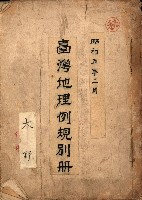 昭和五年二月
臺灣地理例規別冊